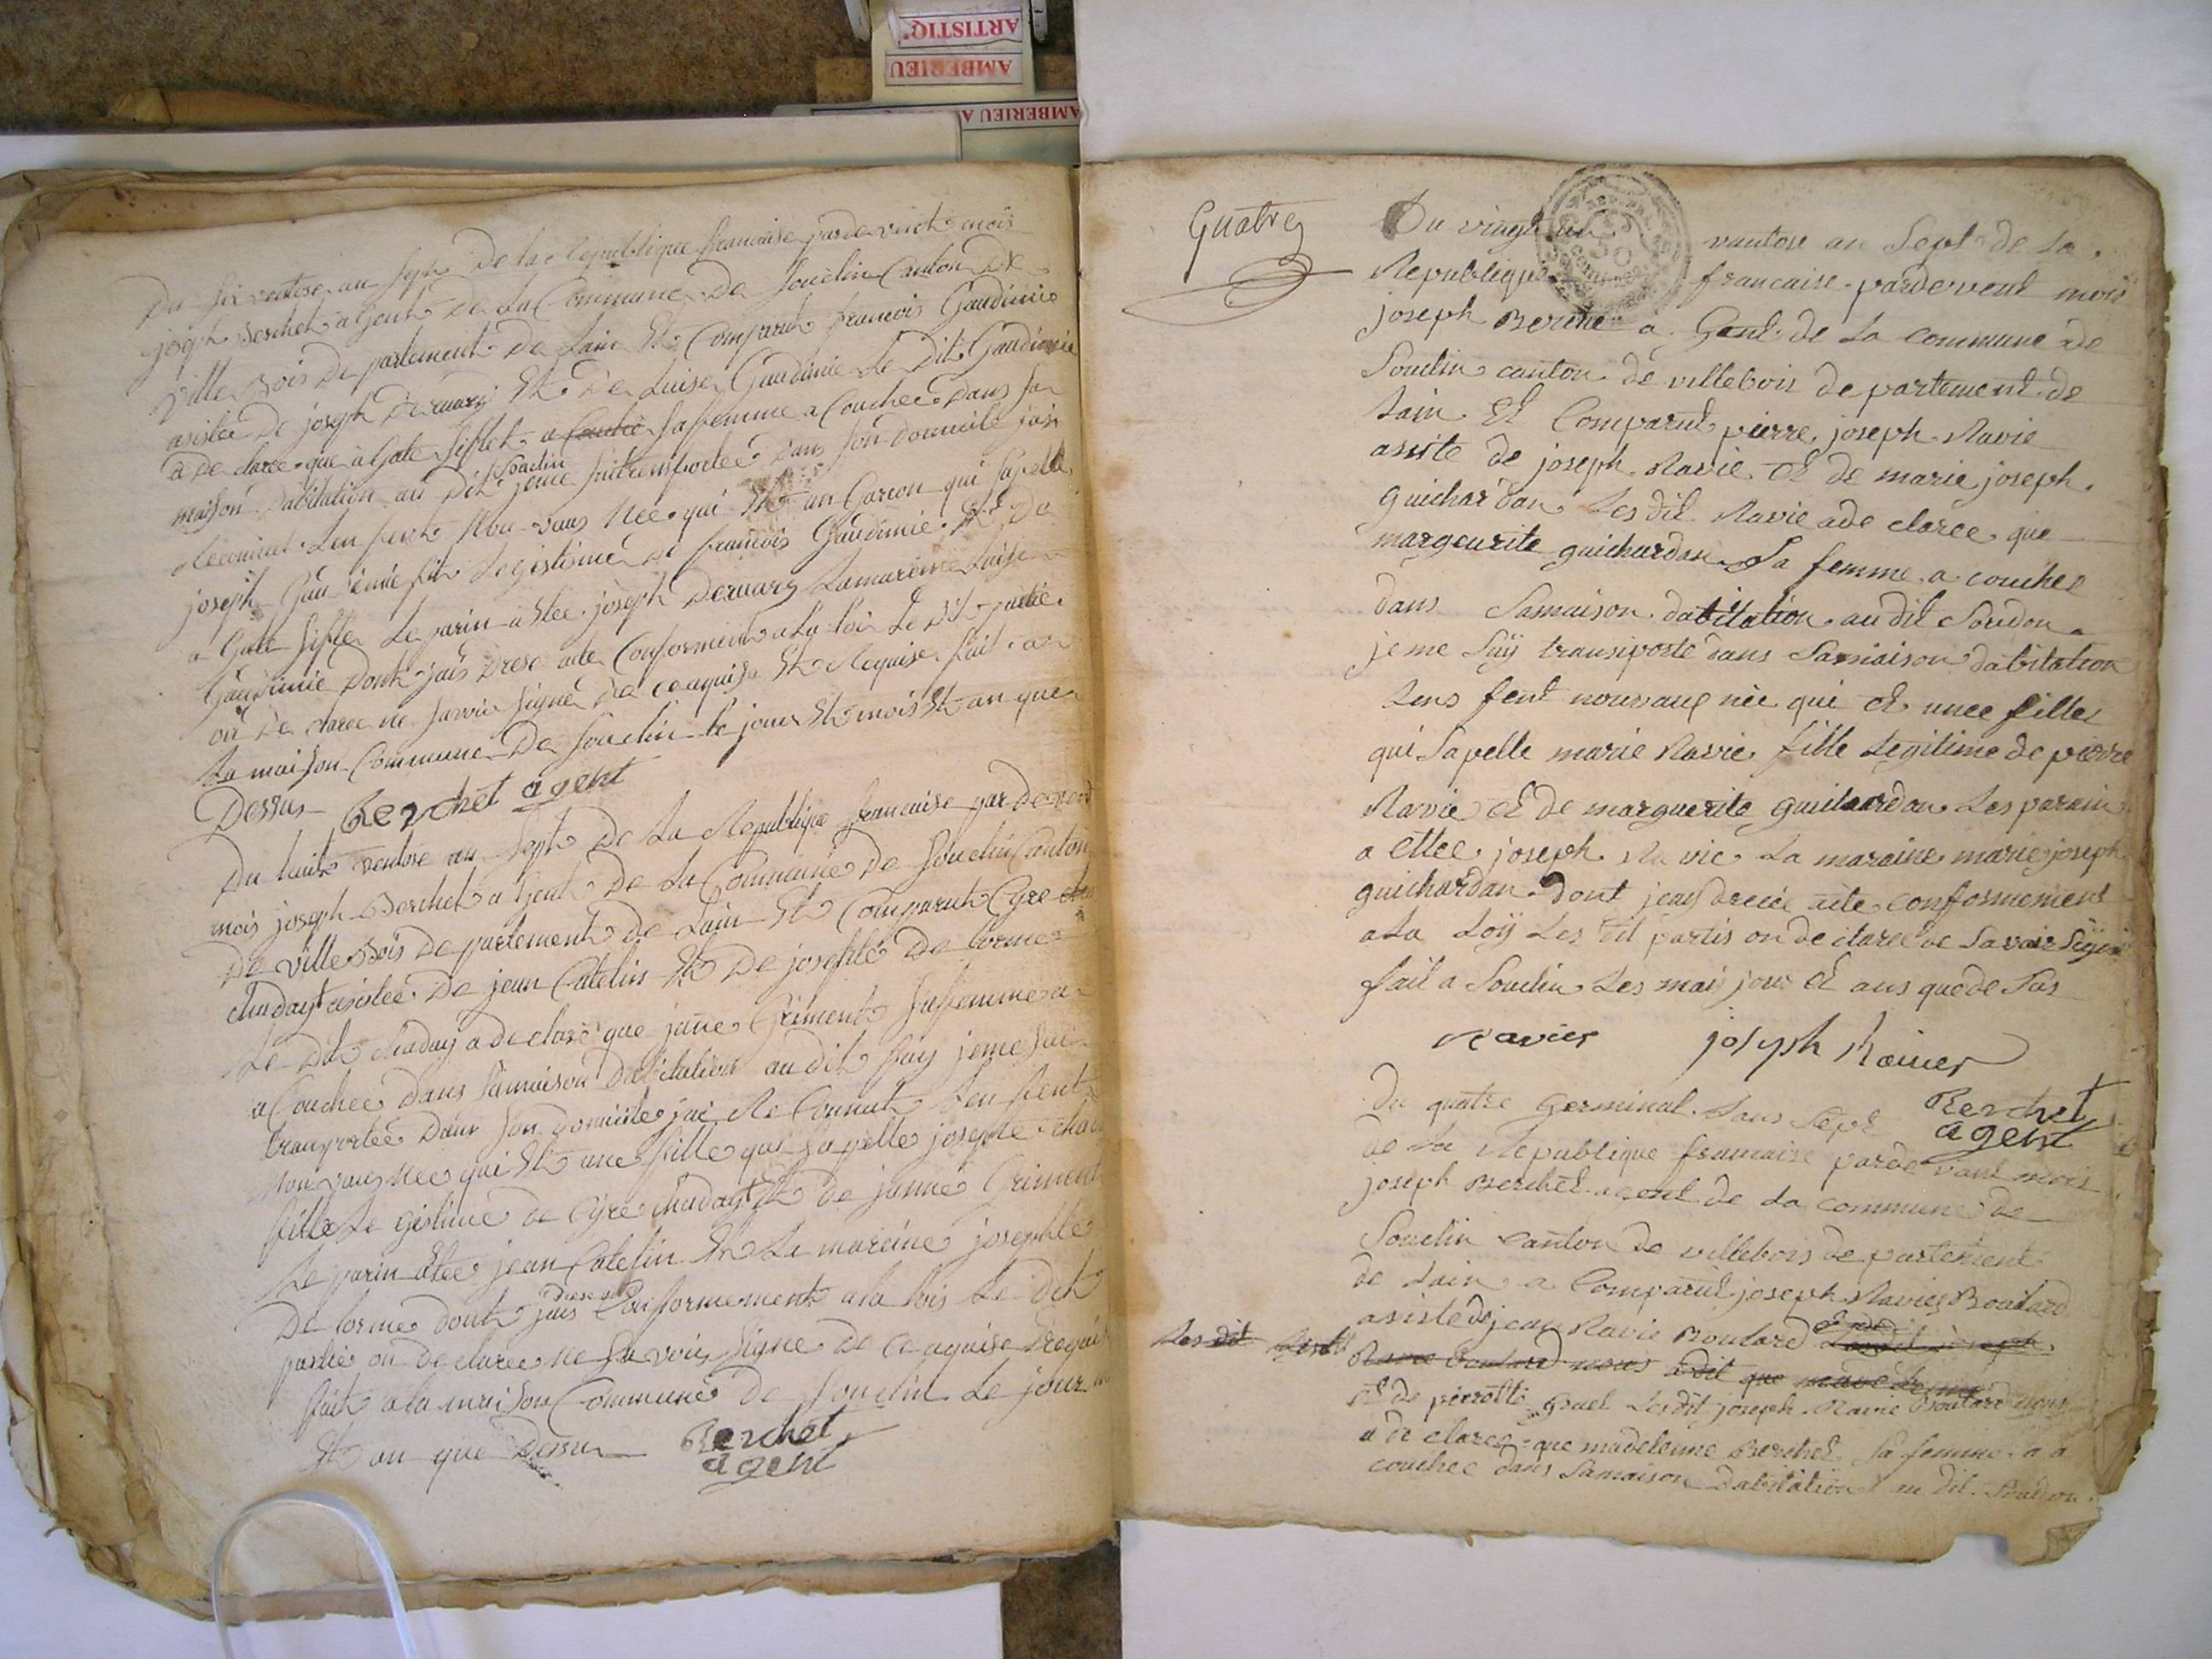 ARTISTIQ'
AMBERIEU
AMBERIEU A
Du six ventose an sept De la Republique francaise pardevent mois
joseph Berchet agent De la Commune De Souclin Canton De
ville Bois De partement De Lain Et Comparut francois Gaudimie
asistée De joseph Deruarz Et De Luise Gaudimie Le Dit Gaudimie
a De claree que agate siflet a Couhé sa femme a Couchee Dans sa
maison Dabitation au Dit Souclin jeme transportee Dans son domicile jais
Reconnut Lenfent Nou vaus Nee qui Et un Garcon qui sapelle
joseph Gaudimie fils Legistime De francois Gaudimie Et De
a Gate siflet Le parin a Etee joseph Deruarz La mareine Luise
Gaudimie Dont jais Drese acte Conformement a La lois Le Dit partie
on De claree ne savoir signe De ce aquise Et Requise fait a
La maison Commune De Souclin le jour Et mois Et an que
Dessus Berchet agent
Du huit ventose an sept De La Republique francaise par Devent
mois joseph Berchet agent De La Commune De Souclin Canton
De ville Bois De partement De Lain Et Comparut Cyre
chaday asistee De jean Catelin Et De josephte De lorme
Le Dit chaday a De claré que jane Griment sa femme a
a Couchee Dans sa maison Dabitation au dit fay jeme sui
transportee Dans son Domicile jai Re Connut Len fent
Nouvaus Nee qui Et une fille qui sa pelle josephte chad
fille Le gistime De Cyre chaday Et de janne Griment
Le parin Etee jean Catelin Et La mareine josephte
De lorme dont jais Drese Conformement a la lois Le dit
partie on De claree ne sa voir signe De ce aquise Requi
fait a la maison Commune De Souclin Le jour m
Et an que Dessu Berchet
agent
Quatre
Du vingt un vantose an Sept de La
Republique francaise pardevent moi
joseph Berchet a Gent de La commune de
Souclin canton de villebois de partement de
Lain Et Comparut pierre joseph Ravie
assite de joseph Ravie Et de marie joseph
guichardan Les dit Ravie ade claree que
margeurite guichardan Sa femme a couchee
dans Samaison dabitation au dit Soudon
je me Suÿ transiporte dans Samaison dabitation
Lens fent nouvaux née qui Et unee fille
qui Sapelle marie Ravie fille Legitime de pierre
Ravie Et de marguerite guichardan Les parain
a ettee joseph Ravie La maraine marie joseph
guichardan Dont jeay drecée acte conformement
ala Loÿ Les dit partis on de claree ne Savoir Signé
fait a Souclin Les mois jour Et ans que de Sus
Ravier joseph Ravier
Du quatre Germinal Lans Sept Berchet
de La Republique francaise parde vant mois agent
joseph Berchet agent de La commune de
Souclin canton de villebois de partement
de Lain a Comparut joseph Ravier Boutard
asiste de jean Ravie Boutard
Les dit Ravie Boutard nous a dit que
Et de pierrette gruel Les dit joseph Ravie Boutard nous
a de claree que madelenne Berchet Sa femme a a
couchee dans Samaison Dabitation au dit Soudon